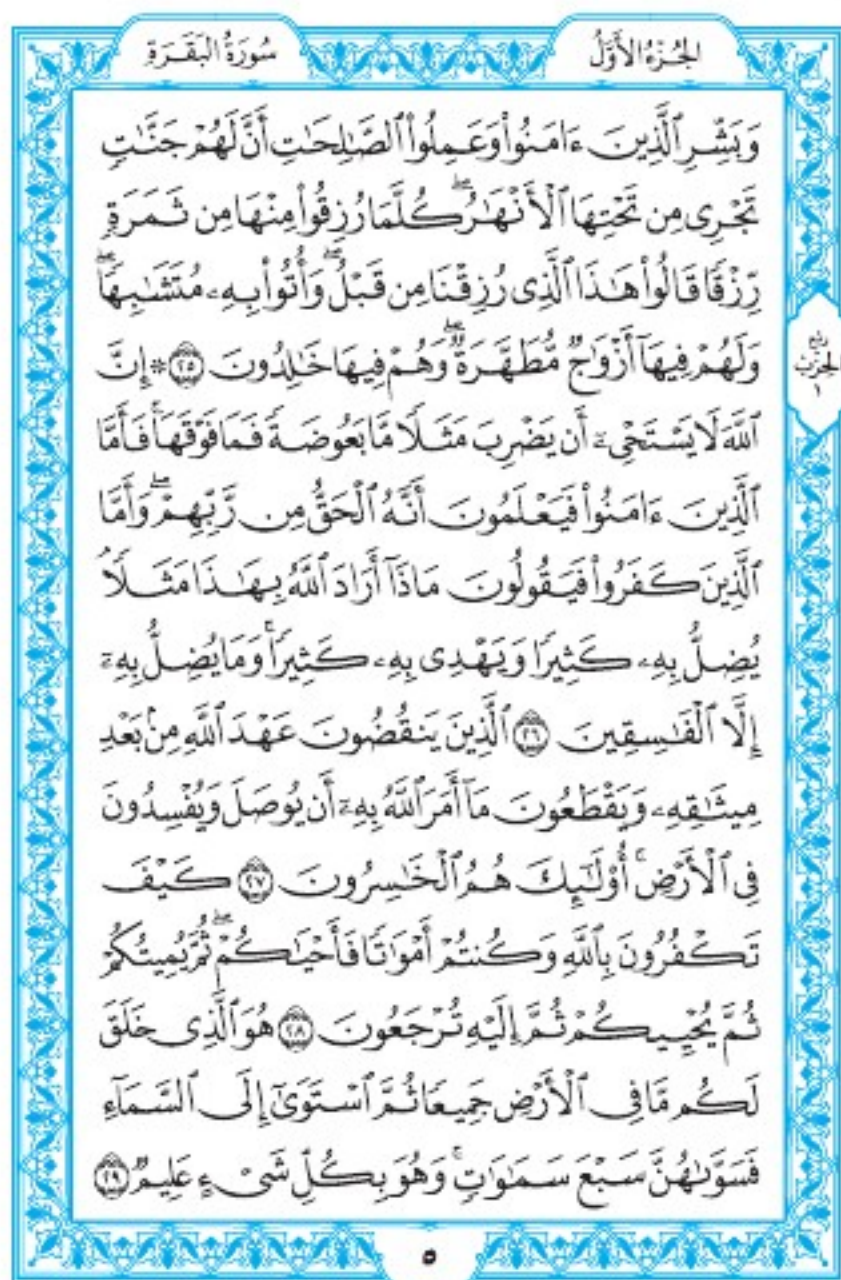 الجُزْءُ الأَوَّلُ
سُورَةُ البَقَرَةِ
وَبَشِّرِ ٱلَّذِينَ ءَامَنُوا۟ وَعَمِلُوا۟ ٱلصَّٰلِحَٰتِ أَنَّ لَهُمْ جَنَّٰتٍ
تَجْرِى مِن تَحْتِهَا ٱلْأَنْهَٰرُ ۖ كُلَّمَا رُزِقُوا۟ مِنْهَا مِن ثَمَرَةٍ
رِّزْقًا قَالُوا۟ هَٰذَا ٱلَّذِى رُزِقْنَا مِن قَبْلُ ۖ وَأُتُوا۟ بِهِۦ مُتَشَٰبِهًا ۖ
وَلَهُمْ فِيهَآ أَزْوَٰجٌ مُّطَهَّرَةٌ ۖ وَهُمْ فِيهَا خَٰلِدُونَ ٢٥ * إِنَّ
رُبْعُ
الحِزْبِ
١
ٱللَّهَ لَا يَسْتَحْىِۦٓ أَن يَضْرِبَ مَثَلًا مَّا بَعُوضَةً فَمَا فَوْقَهَا ۚ فَأَمَّا
ٱلَّذِينَ ءَامَنُوا۟ فَيَعْلَمُونَ أَنَّهُ ٱلْحَقُّ مِن رَّبِّهِمْ ۖ وَأَمَّا
ٱلَّذِينَ كَفَرُوا۟ فَيَقُولُونَ مَاذَآ أَرَادَ ٱللَّهُ بِهَٰذَا مَثَلًا ۘ
يُضِلُّ بِهِۦ كَثِيرًا وَيَهْدِى بِهِۦ كَثِيرًا ۚ وَمَا يُضِلُّ بِهِۦٓ
إِلَّا ٱلْفَٰسِقِينَ ٢٦ ٱلَّذِينَ يَنقُضُونَ عَهْدَ ٱللَّهِ مِنۢ بَعْدِ
مِيثَٰقِهِۦ وَيَقْطَعُونَ مَآ أَمَرَ ٱللَّهُ بِهِۦٓ أَن يُوصَلَ وَيُفْسِدُونَ
فِى ٱلْأَرْضِ ۚ أُو۟لَٰٓئِكَ هُمُ ٱلْخَٰسِرُونَ ٢٧ كَيْفَ
تَكْفُرُونَ بِٱللَّهِ وَكُنتُمْ أَمْوَٰتًا فَأَحْيَٰكُمْ ۖ ثُمَّ يُمِيتُكُمْ
ثُمَّ يُحْيِيكُمْ ثُمَّ إِلَيْهِ تُرْجَعُونَ ٢٨ هُوَ ٱلَّذِى خَلَقَ
لَكُم مَّا فِى ٱلْأَرْضِ جَمِيعًا ثُمَّ ٱسْتَوَىٰٓ إِلَى ٱلسَّمَآءِ
فَسَوَّىٰهُنَّ سَبْعَ سَمَٰوَٰتٍ ۚ وَهُوَ بِكُلِّ شَىْءٍ عَلِيمٌ ٢٩
٥